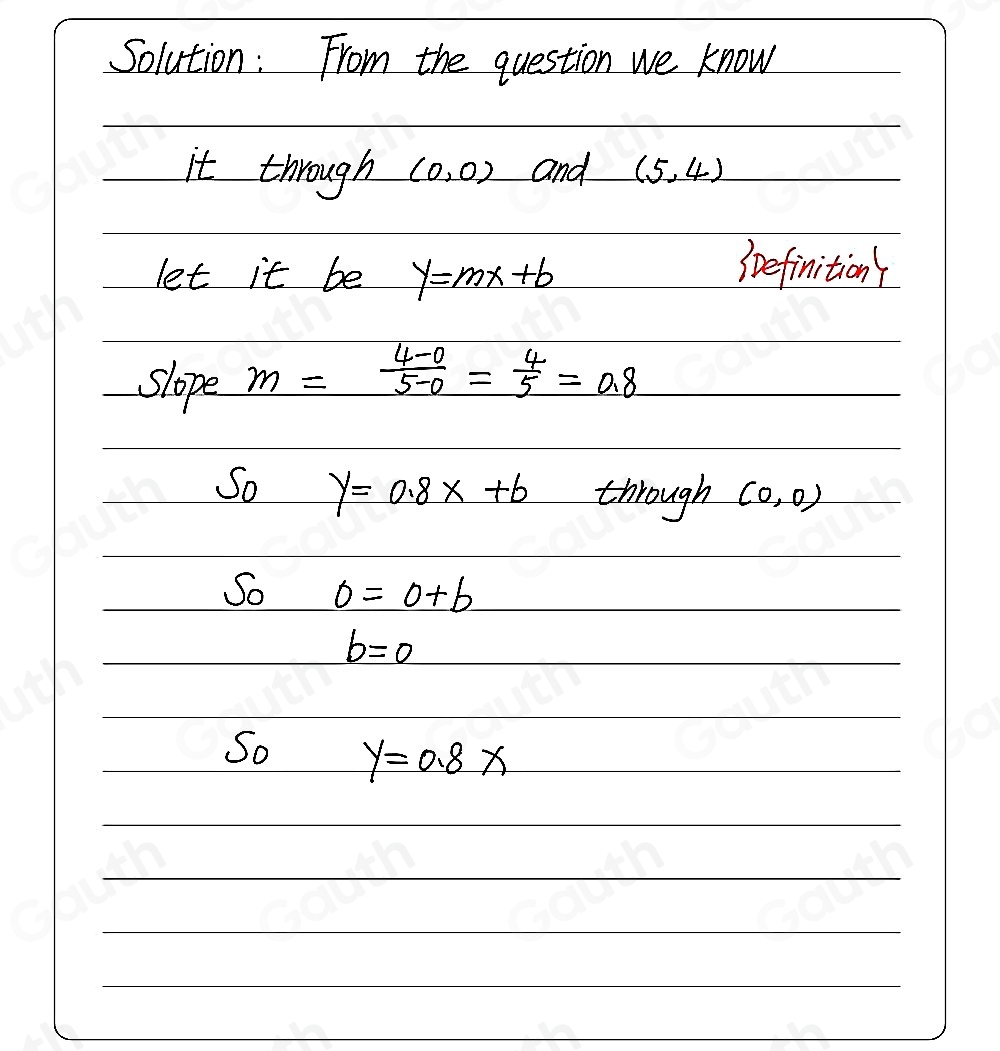 Solution: From the question we know
it through (0,0) and (5,4)
let it be y=mx+b {Definition}
Slope m = \frac{4-0}{5-0} = \frac{4}{5} = 0.8
So y=0.8x+b through (0,0)
So 0=0+b
b=0
So y=0.8x